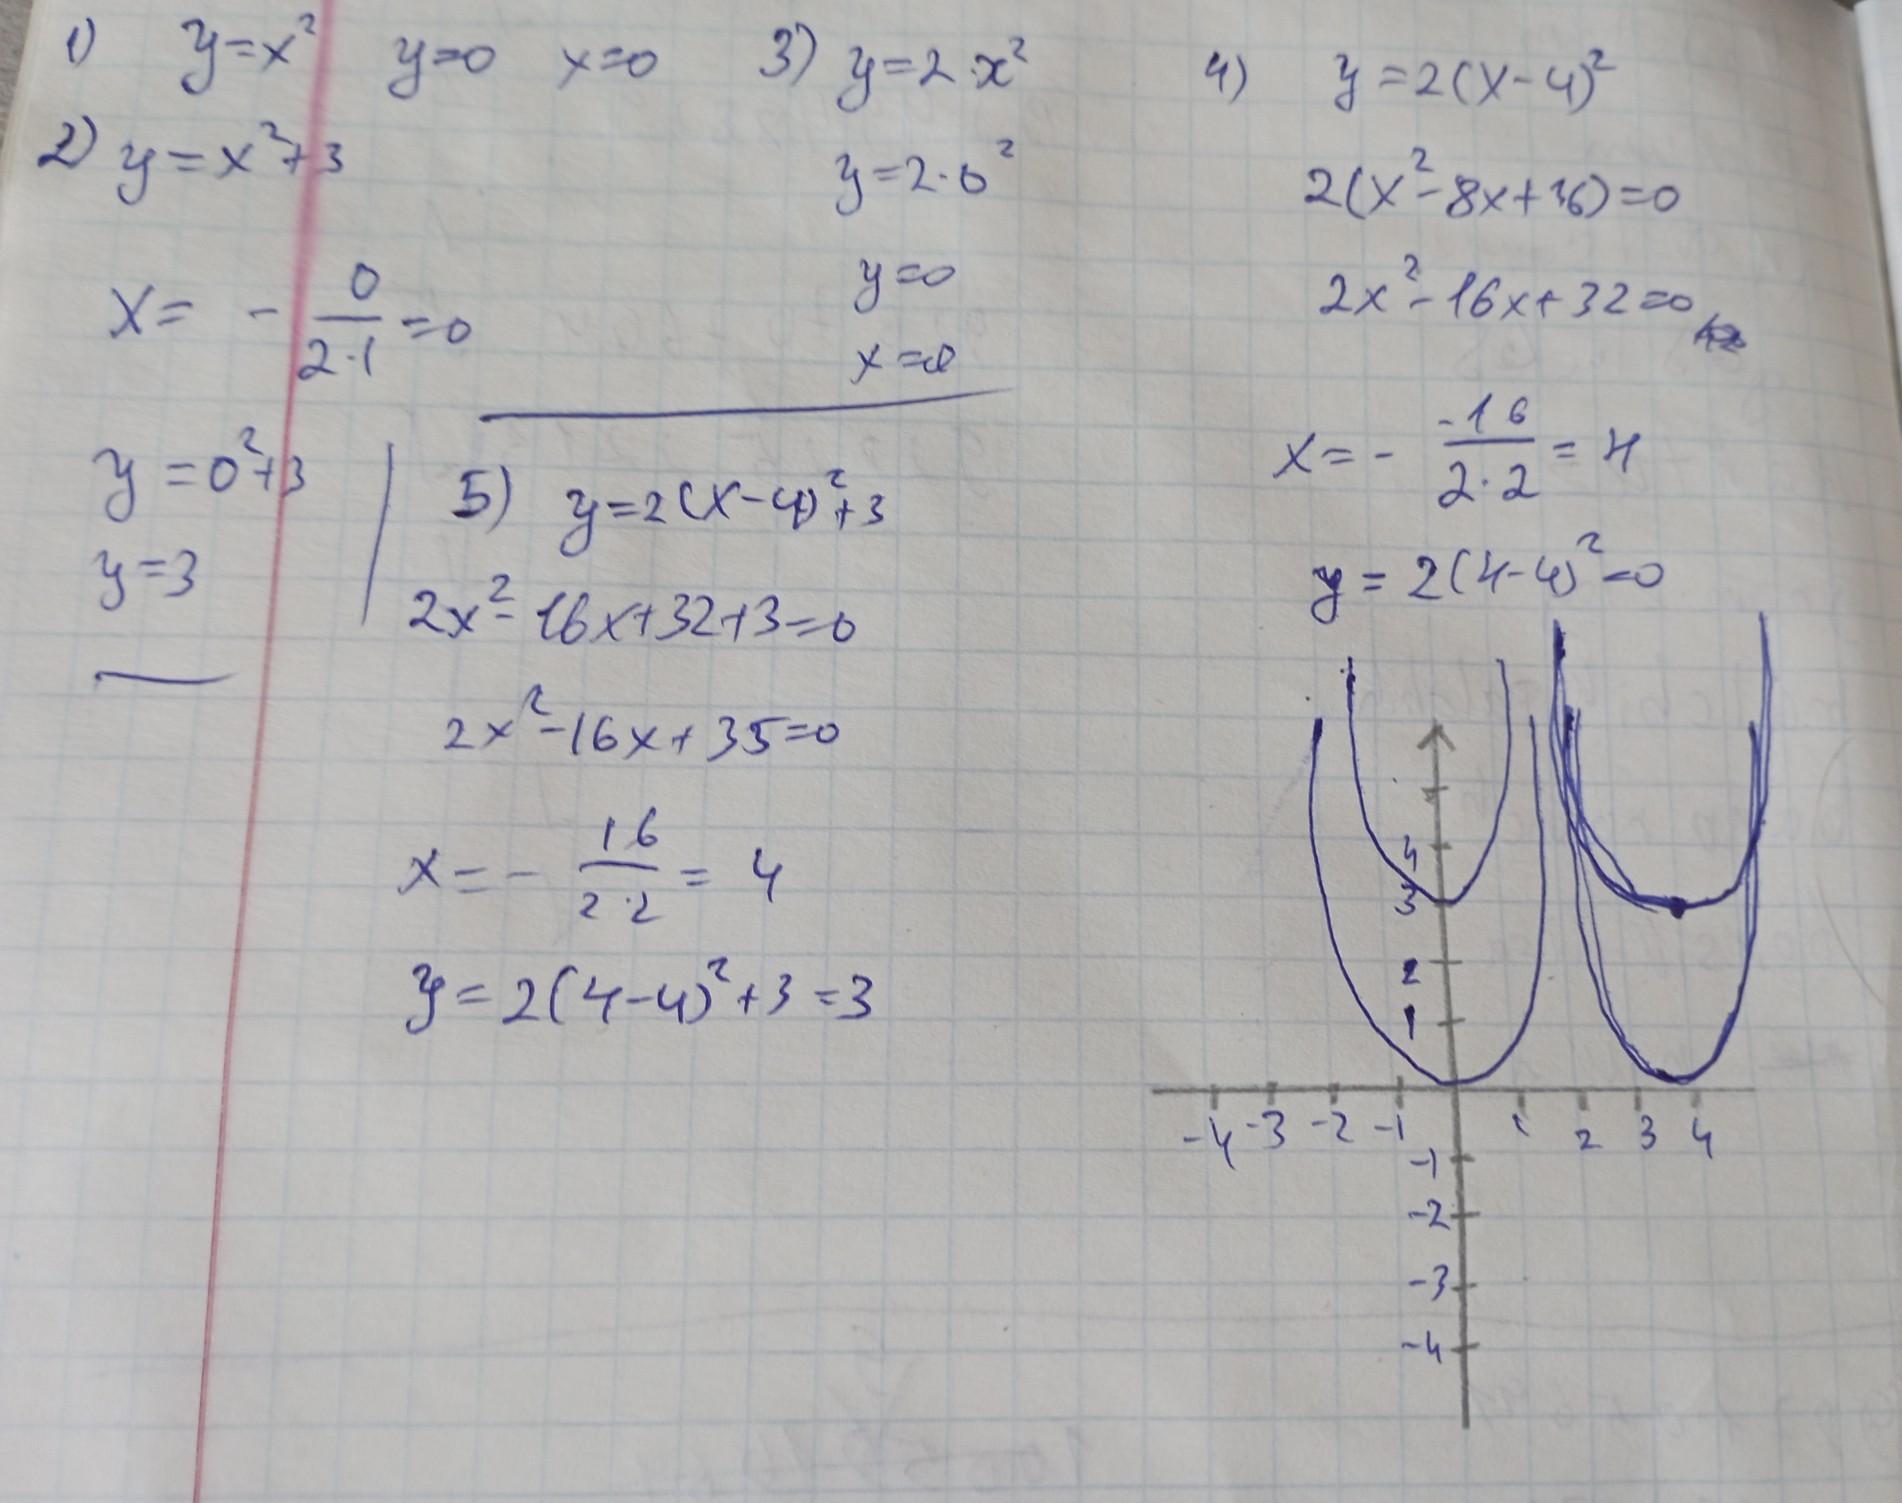 1) y=x² y=0 x=0
2) y=x²+3
x= - 0/(2·1) =0
y=0²+3
y=3
3) y=2·x²
y=2·0²
y=0
x=0
4) y=2(x-4)²
2(x²-8x+16)=0
2x²-16x+32=0
x= - -16/(2·2) = 4
y=2(4-4)²=0
5) y=2(x-4)²+3
2x²-16x+32+3=0
2x²-16x+35=0
x= - 16/(2·2) = 4
y=2(4-4)²+3=3
4
3
2
1
-4 -3 -2 -1 1 2 3 4
-1
-2
-3
-4